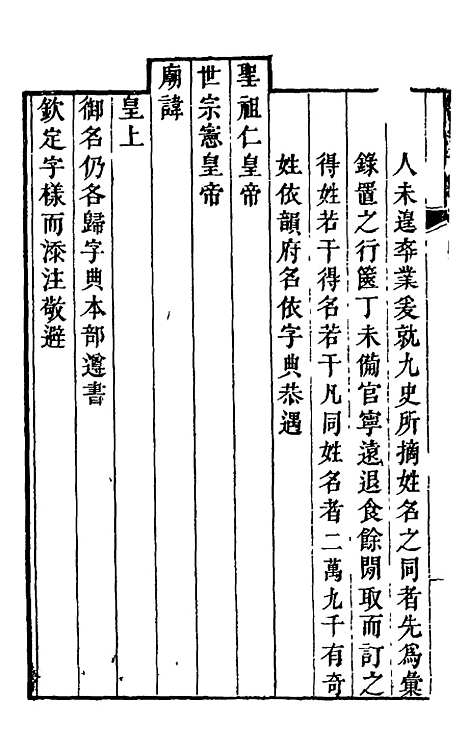 人未遑卒業爰就九史所摘姓名之同者先為彙
錄置之行篋丁未備官寧遠退食餘閒取而訂之
得姓若干得名若干凡同姓名者二萬九千有奇
姓依韻府名依字典恭遇
聖祖仁皇帝
世宗憲皇帝
廟諱
皇上
御名仍各歸字典本部遵書
欽定字樣而添注敬避